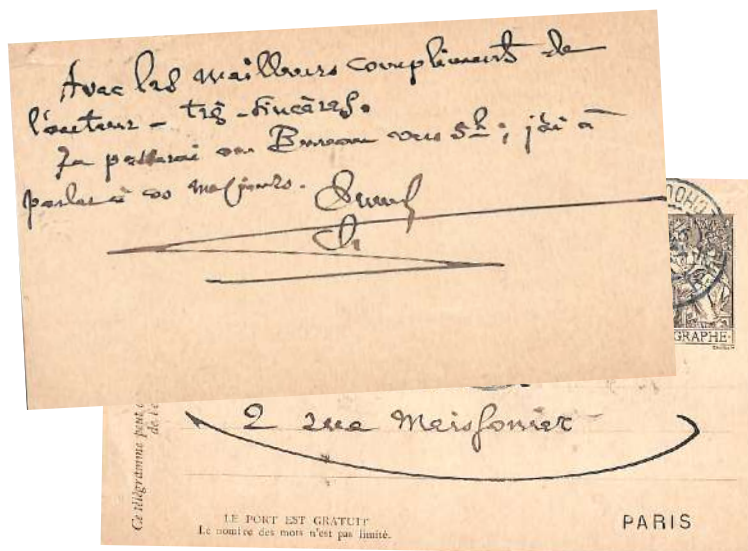 Avec les meilleurs compliments de
l'auteur - très-sincères.
Je passerai au Bureau vers 5h; j'ai à
parler à ces messieurs.
GRAPHE
2 rue Meissonier
Ce télégramme peut
de l'e
LE PORT EST GRATUIT
Le nombre des mots n'est pas limité.
PARIS